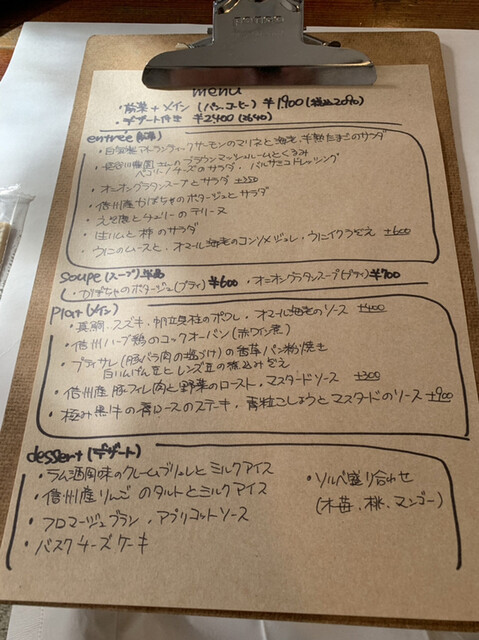 menu
・前菜+メイン (パン、コーヒー) ¥1,900 (税込2090)
・デザート付き ¥2,400 (2640)
entrée (前菜)
・自家製アトランティックサーモンのマリネと海老、半熟たまごのサラダ
・長谷川農園さんのブラウンマッシュルームとくるみ
ペコリーノチーズのサラダ・バルサミコドレッシング
・オニオングラタンスープとサラダ +350
・信州産かぼちゃのポタージュとサラダ
・とチェリーのテリーヌ
・生ハムと柿のサラダ
・うにのムースと、オマール海老のコンソメジュレ、うにイクラ添え +600
soupe (スープ) 単品
・かぼちゃのポタージュ(プティ) ¥600 ・オニオングラタンスープ(プティ) ¥700
plat (メイン)
・真鯛・スズキ・帆立貝柱のポワレ、オマール海老のソース +400
・信州ハーブ鶏のコックオーバン(赤ワイン煮)
・プティサレ(豚バラ肉の塩づけ)の香草パン粉焼き
白いんげん豆とレンズ豆の煮込みぞえ
・信州産豚フィレ肉と野菜のロースト、マスタードソース +300
・極み黒牛の肩ロースのステーキ、青粒こしょうとマスタードのソース +900
dessert (デザート)
・ラム酒風味のクレームブリュレとミルクアイス
・信州産りんごのタルトとミルクアイス
・フロマージュブラン、アプリコットソース
・バスクチーズケーキ
・ソルベ盛り合わせ
(木苺、桃、マンゴー)